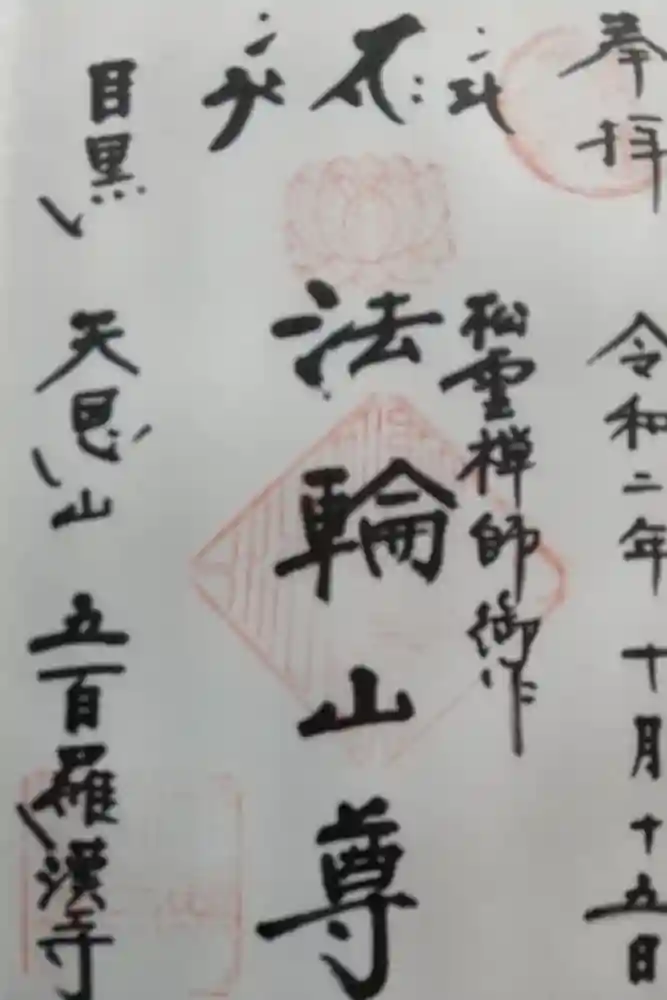 奉拝
令和二年十月十五日
松雲禅師御作
法輪山尊
目黒
天恩山
五百羅漢寺